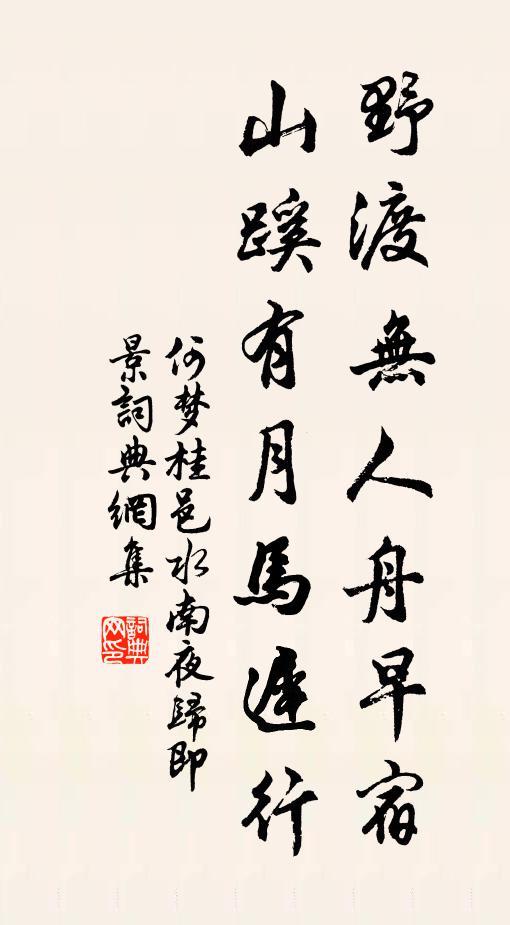 野渡無人舟早宿
山蹊有月馬遲行
何梦桂邑水南夜歸即
景詞典網集
詞典
网印